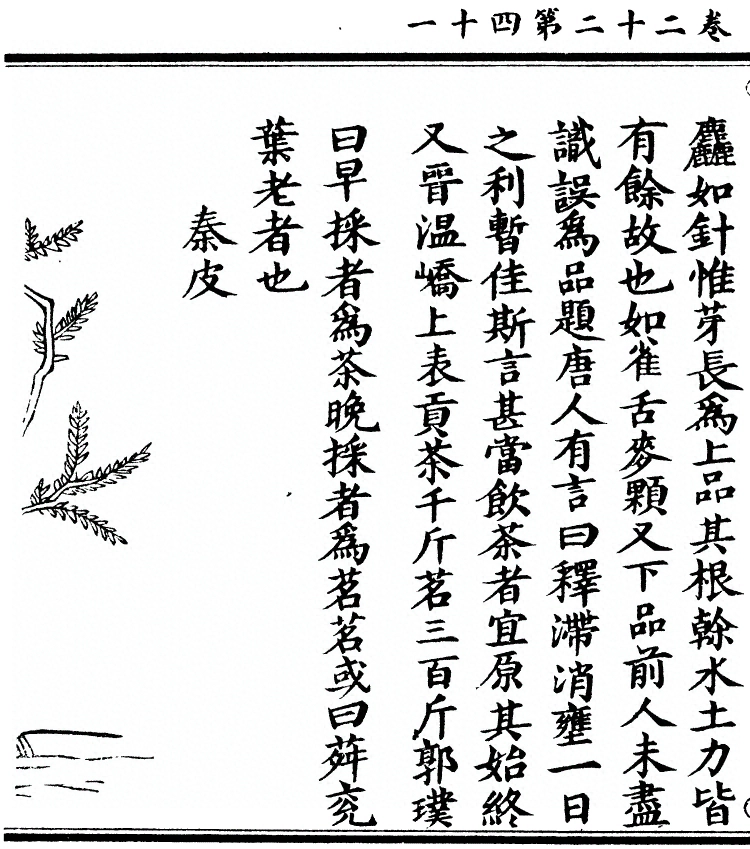 卷二十二第四十一
麤如針惟芽長為上品其根榦水土力皆
有餘故也如雀舌麥顆又下品前人未盡
識誤為品題唐人有言曰釋滯消壅一日
之利暫佳斯言甚當飲茶者宜原其始終
又晉温嶠上表貢茶千斤茗三百斤郭璞
曰早採者為茶晚採者為茗茗或曰荈兖
葉老者也
秦皮